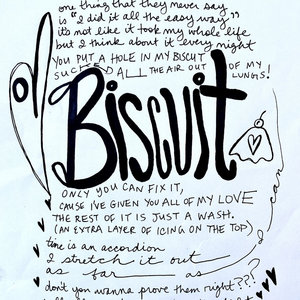 one thing that they never say
is "i did it all the easy way"
it's not like it took my whole life
but i think about it every night
YOU PUT A HOLE IN MY BISCUT
SUCKED ALL THE AIR OUT OF MY
LUNGS!
BISCUIT
ONLY YOU CAN FIX IT,
CAUSE I'VE GIVEN YOU ALL OF MY LOVE
THE REST OF IT IS JUST A WASH.
(AN EXTRA LAYER OF ICING ON THE TOP)
time is an accordion
I stretch it out
as far as I can
don't you wanna prove them right??!